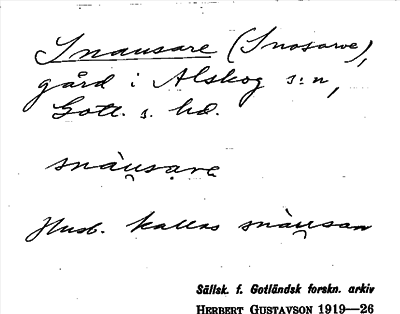 Snausare (Snosarve),
gård i Alskog s:n,
Gotl. s. hd.
snàu̯sarɛ
Husb. kallas snàu̯san
Sällsk. f. Gotländsk forskn. arkiv
HERBERT GUSTAVSON 1919—26